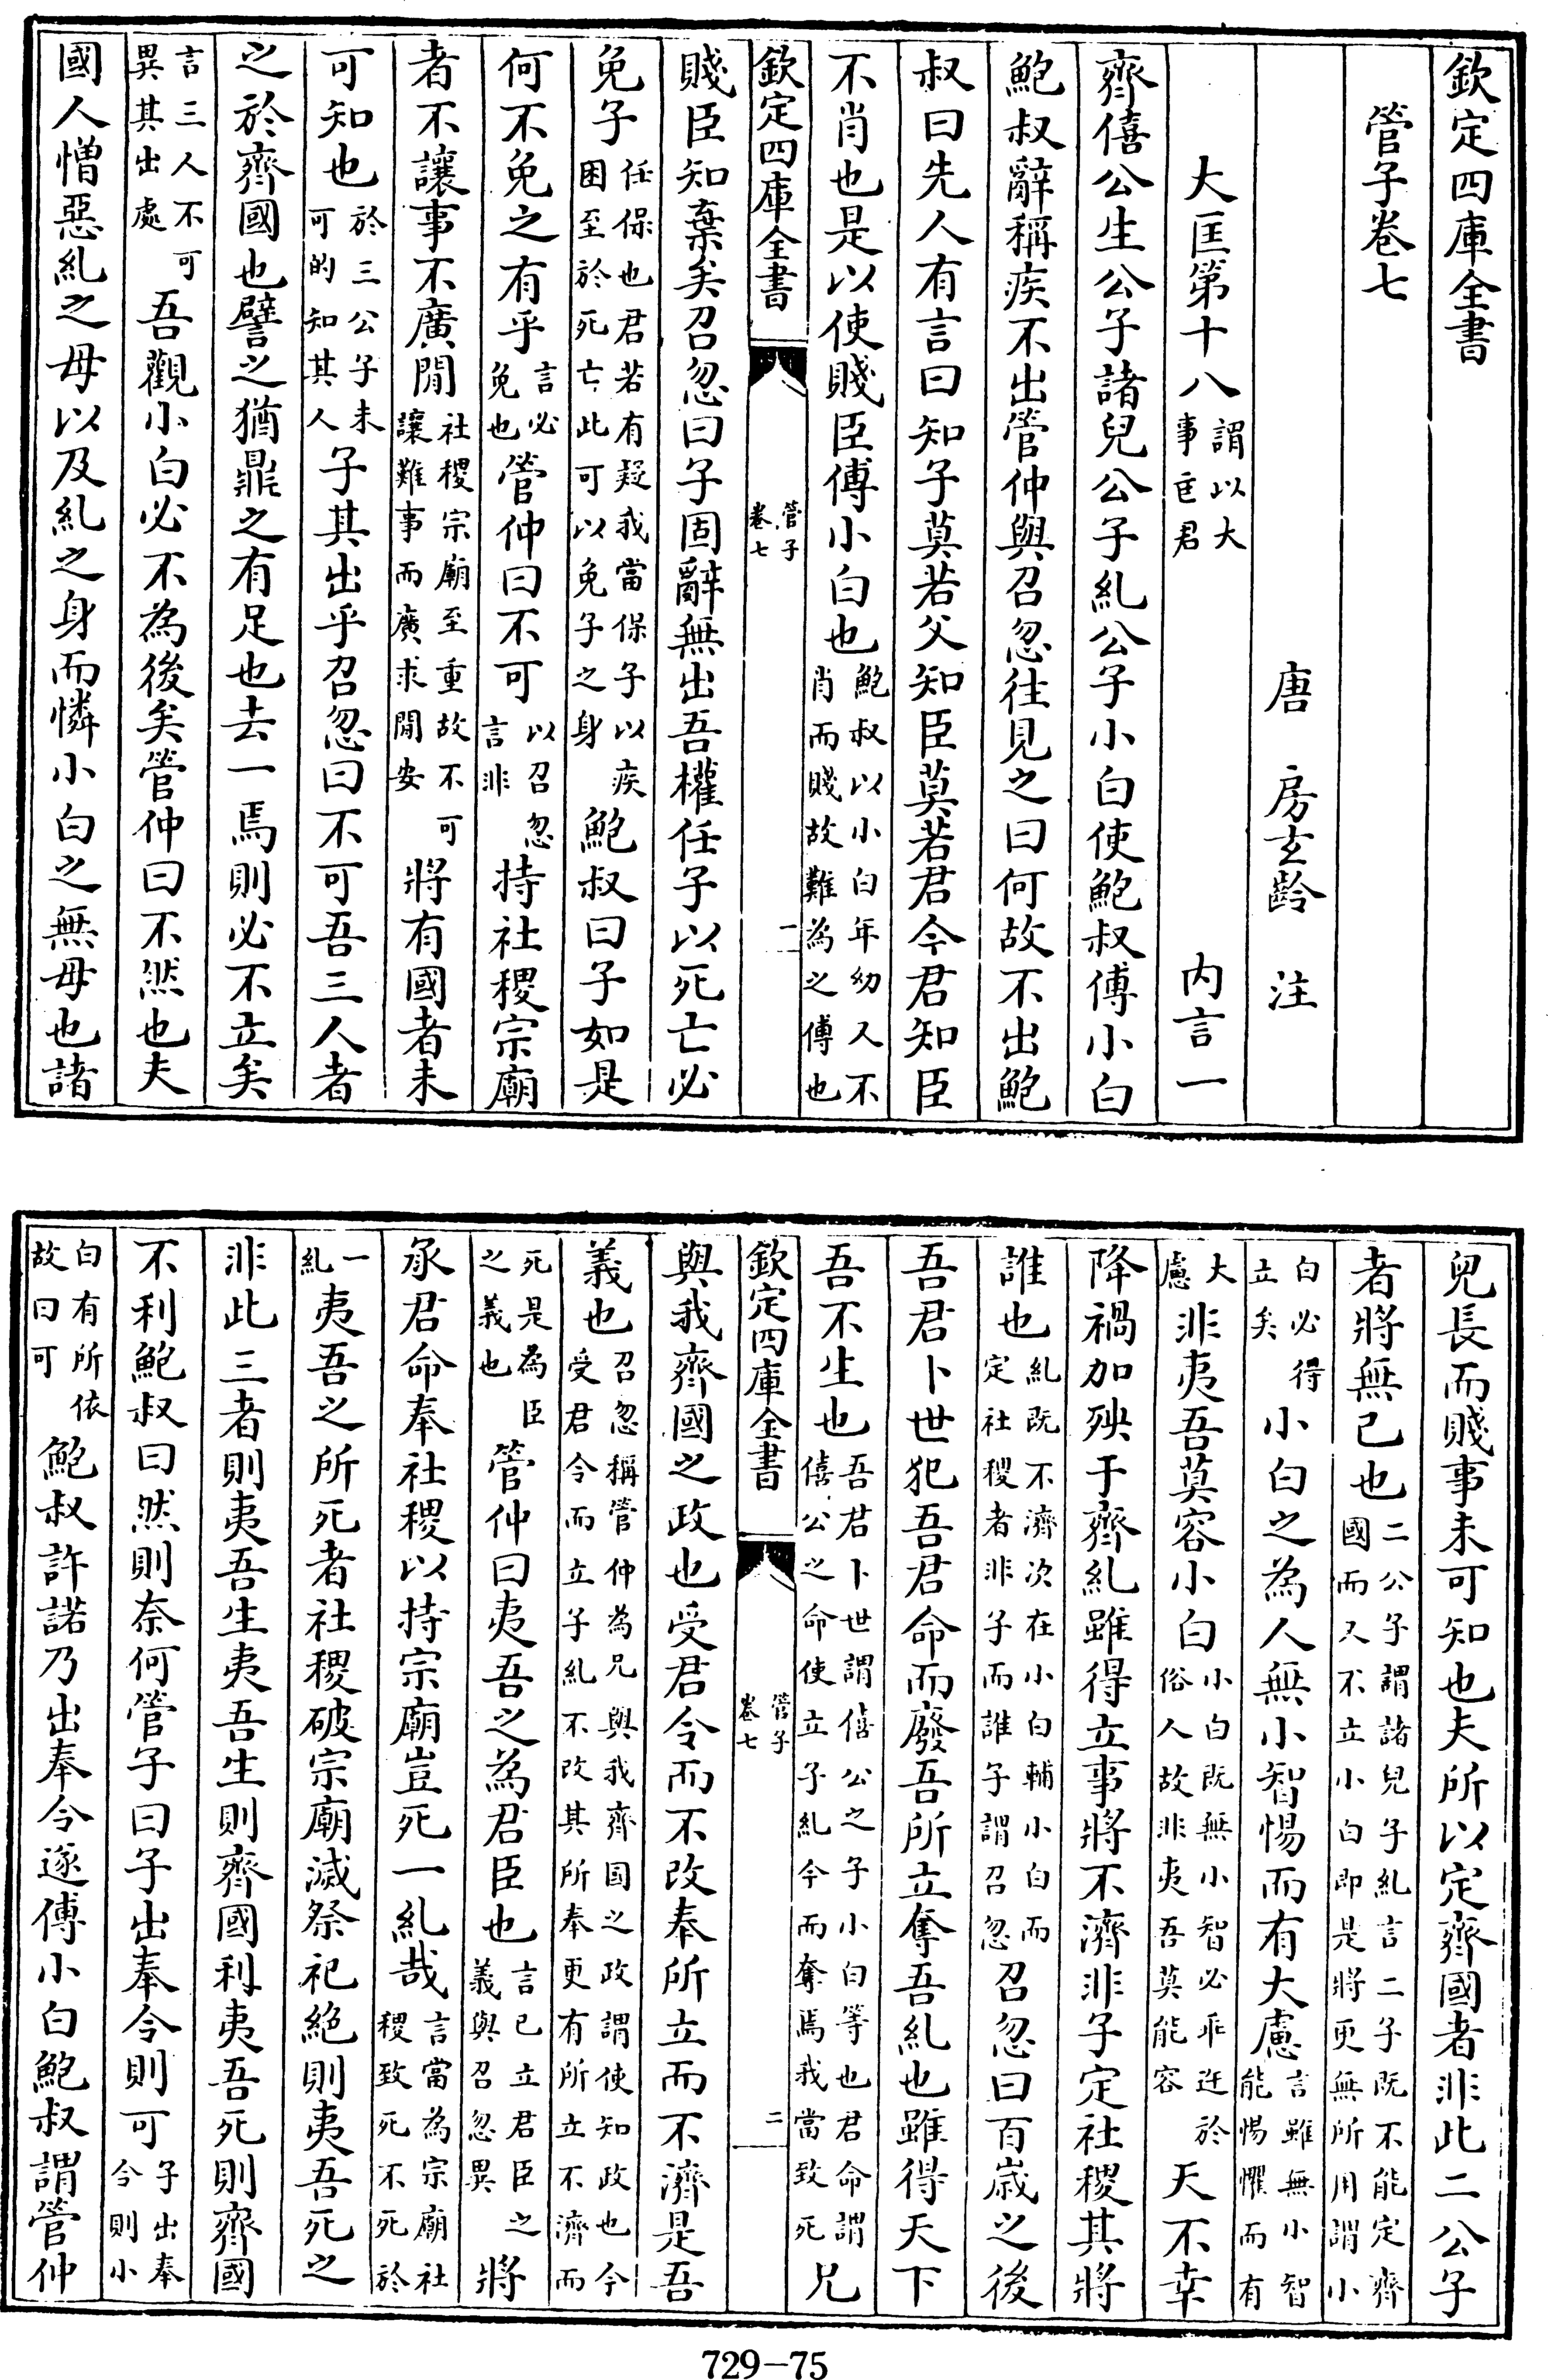 欽定四庫全書
管子卷七
唐　房玄齡　注
大匡第十八謂以大事匡君　内言一
齊僖公生公子諸兒公子糺公子小白使鮑叔傅小白
鮑叔辭稱疾不出管仲與召忽往見之曰何故不出鮑
叔曰先人有言曰知子莫若父知臣莫若君今君知臣
不肖也是以使賤臣傅小白也鮑叔以小白年幼又不肖而賤故難為之傅也
欽定四庫全書　管子卷七　一
賤臣知棄矣召忽曰子固辭無出吾權任子以死亡必
免子任保也君若有疑我當保子以疾困至於死亡此可以免子之身鮑叔曰子如是
何不免之有乎言必免也管仲曰不可以召忽言非持社稷宗廟
者不讓事不廣閒社稷宗廟至重故不可讓難事而廣求閒安將有國者未
可知也於三公子未可的知其人子其出乎召忽曰不可吾三人者
之於齊國也譬之猶鼎之有足也去一焉則必不立矣
言三人不可異其出處吾觀小白必不為後矣管仲曰不然也夫
國人憎惡糺之母以及糺之身而憐小白之無母也諸
兒長而賤事未可知也夫所以定齊國者非此二公子
者將無已也二公子謂諸兒子糺言二子既不能定齊國而又不立小白即是將更無所用謂小
白必得立矣小白之為人無小智惕而有大慮言雖無小智能惕懼而有
大慮非夷吾莫容小白小白既無小智必乖迕於俗人故非夷吾莫能容天不幸
降禍加殃于齊糺雖得立事將不濟非子定社稷其將
誰也糺既不濟次在小白輔小白而定社稷者非子而誰子謂召忽召忽曰百歲之後
吾君卜世犯吾君命而廢吾所立奪吾糺也雖得天下
吾不生也吾君卜世謂僖公之子小白等也君命謂僖公之命使立子糺今而奪焉我當致死兄
欽定四庫全書　管子卷七　二
與我齊國之政也受君令而不改奉所立而不濟是吾
義也召忽稱管仲為兄與我齊国之政謂使知政也今受君令而立子糺不改其所奉更有所立不濟而
死是為臣之義也管仲曰夷吾之為君臣也言已立君臣之義與召忽異將
承君命奉社稷以持宗廟豈死一糺哉言當為宗廟社稷致死不死於
一糺夷吾之所死者社稷破宗廟滅祭祀絶則夷吾死之
非此三者則夷吾生夷吾生則齊國利夷吾死則齊國
不利鮑叔曰然則奈何管子曰子出奉令則可子出奉令則小
白有所依故曰可鮑叔許諾乃出奉令遂傅小白鮑叔謂管仲
729-75